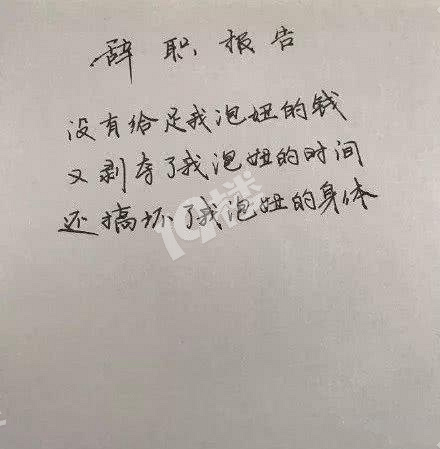 辞职报告
没有给足我泡妞的钱
又剥夺了我泡妞的时间
还搞坏了我泡妞的身体
19楼